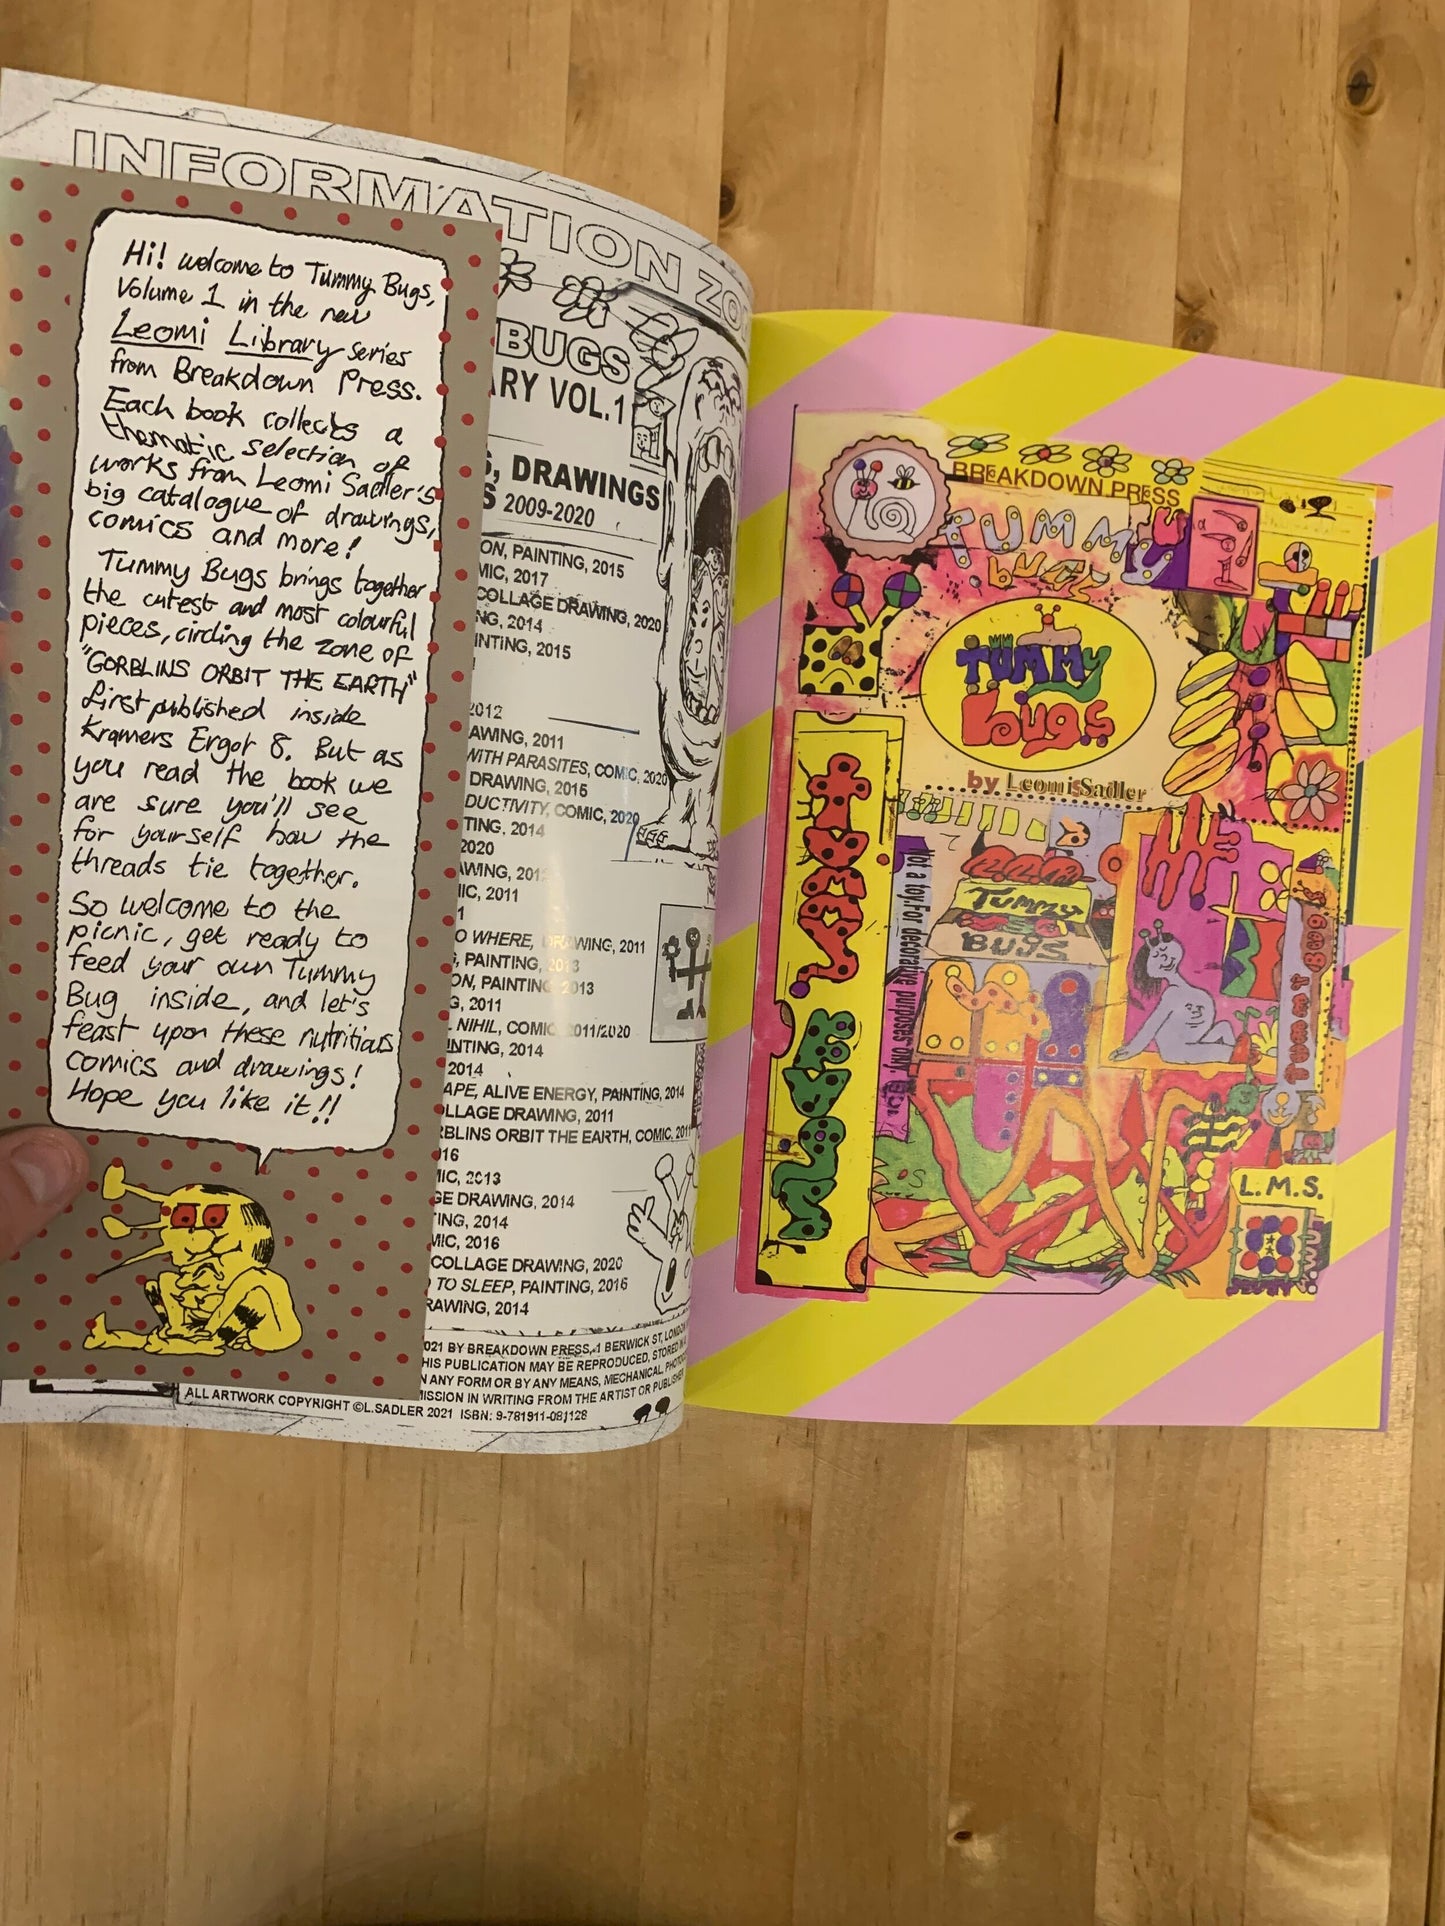 Hi! welcome to Tummy Bugs,
Volume 1 in the new
Leomi Library series
from Breakdown Press.
Each book collects a
thematic selection of
works from Leomi Sadler's
big catalogue of drawings,
comics and more!
Tummy Bugs brings together
the cutest and most colourful
pieces, circling the zone of
"GORBLINS ORBIT THE EARTH"
first published inside
Kramers Ergot 8. But as
you read the book we
are sure you'll see
for yourself how the
threads tie together.
So welcome to the
picnic, get ready to
feed your own Tummy
Bug inside, and let's
feast upon these nutritious
comics and drawings!
Hope you like it!!
INFORMATION ZO
BUGS
ARY VOL.1
S, DRAWINGS
S 2009-2020
ON, PAINTING, 2015
MIC, 2017
COLLAGE DRAWING, 2020
NG, 2014
INTING, 2015
2012
AWING, 2011
WITH PARASITES, COMIC, 2020
DRAWING, 2016
DUCTIVITY, COMIC, 2020
TING, 2014
2020
AWING, 201
IC, 2011
1
O WHERE, DRAWING, 2011
G, PAINTING, 2013
ON, PAINTING 2013
G, 2011
NIHIL, COMIC 2011/2020
INTING, 2014
2014
APE, ALIVE ENERGY, PAINTING, 2014
LLAGE DRAWING, 2011
RBLINS ORBIT THE EARTH, COMIC, 2011
16
IC, 2013
GE DRAWING, 2014
ING, 2014
MIC, 2016
COLLAGE DRAWING, 2020
TO SLEEP, PAINTING, 2016
RAWING, 2014
021 BY BREAKDOWN PRESS, 1 BERWICK ST, LONDON
HIS PUBLICATION MAY BE REPRODUCED, STORED IN A
N ANY FORM OR BY ANY MEANS, MECHANICAL, PHOTOC
ISSION IN WRITING FROM THE ARTIST OR PUBLISHER
ALL ARTWORK COPYRIGHT ©L.SADLER 2021 ISBN: 9-781911-081128
BREAKDOWN PRESS
TUMMY
bugs
TUMMY
bugs
by Leomi Sadler
TUMMY
BUGS
Not a toy. For decorative purposes only.
Tummy Bugs
L.M.S.